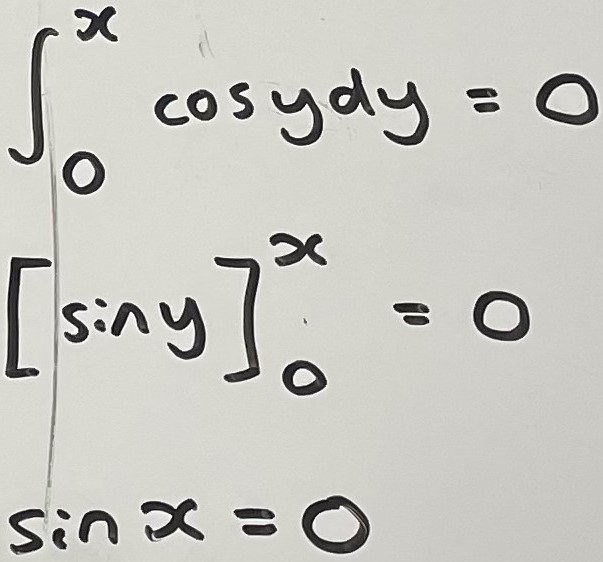 ∫₀ˣ cosydy = 0
[siny]₀ˣ = 0
sin x = 0